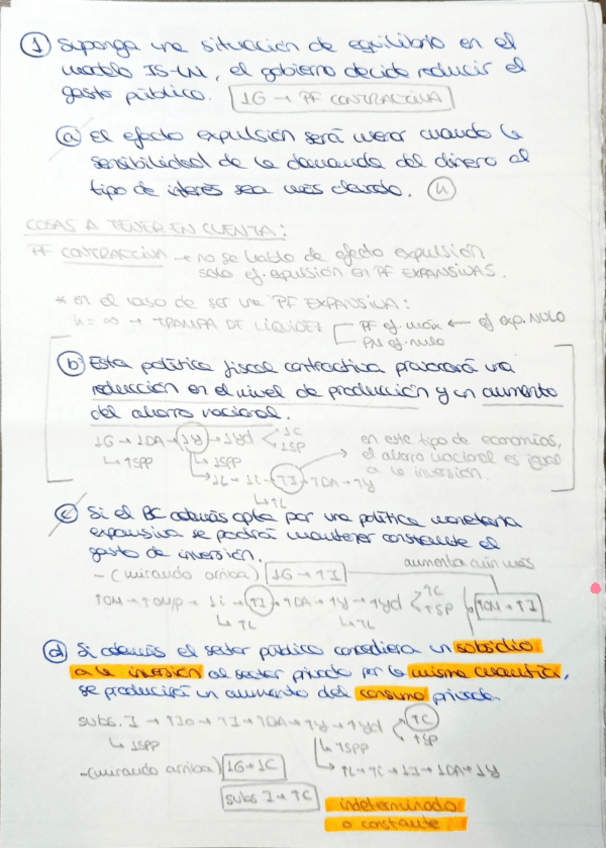 ① Suponga una situación de equilibrio en el
modelo IS-LM, el gobierno decide reducir el
gasto público. ↓G → PF CONTRACTIVA
ⓐ El efecto expulsión será menor cuando la
sensibilidad de la demanda del dinero al
tipo de interés sea más elevado. (h)
COSAS A TENER EN CUENTA:
PF CONTRACTIVA → no se habla de efecto expulsión
solo ef. expulsión en PF EXPANSIVAS.
* en el caso de ser una PF EXPANSIVA:
h = ∞ → TRAMPA DE LIQUIDEZ PF ef. máx ← ef exp. NULO
PM ef. nulo
ⓑ Esta política fiscal contractiva provocará una
reducción en el nivel de producción y un aumento
del ahorro nacional.
↓G → ↓DA → ↓Y → ↓Yd < ↓C
↓SP
en este tipo de economías,
↳ ↑SPP ↳ ↓SPP
el ahorro nacional es igual
↳ ↓L → ↓i → ↑I → ↑DA → ↑Y
a la inversión.
↳ ↑L
ⓒ Si el BC además opta por una política monetaria
expansiva se podrá mantener constante el
gasto de inversión.
aumenta aún más
- (mirando arriba) ↓G → ↑I
↑OM → ↑OM/P → ↓i → ↑I → ↑DA → ↑Y → ↑Yd < ↑C
↑SP
↑OM → ↑I
↳ ↑L ↳ ↑L
ⓓ Si además el sector público considera un subsidio
a la inversión al sector privado por la misma cuantía,
se producirá un aumento del consumo privado.
subs. I → ↑I₀ → ↑I → ↑DA → ↑Y → ↑Yd < ↑C
↑SP
↳ ↓SPP ↳ ↑SPP
↳ ↑L → ↑i → ↓I → ↓DA → ↓Y
- (mirando arriba) ↓G → ↓C
subs I → ↑C
indeterminado
o constante